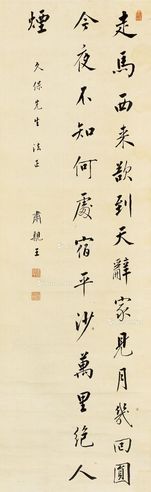 走馬西来欲到天辭家見月幾回圓
今夜不知何處宿平沙萬里絶人
煙
久保先生法正
肅親王